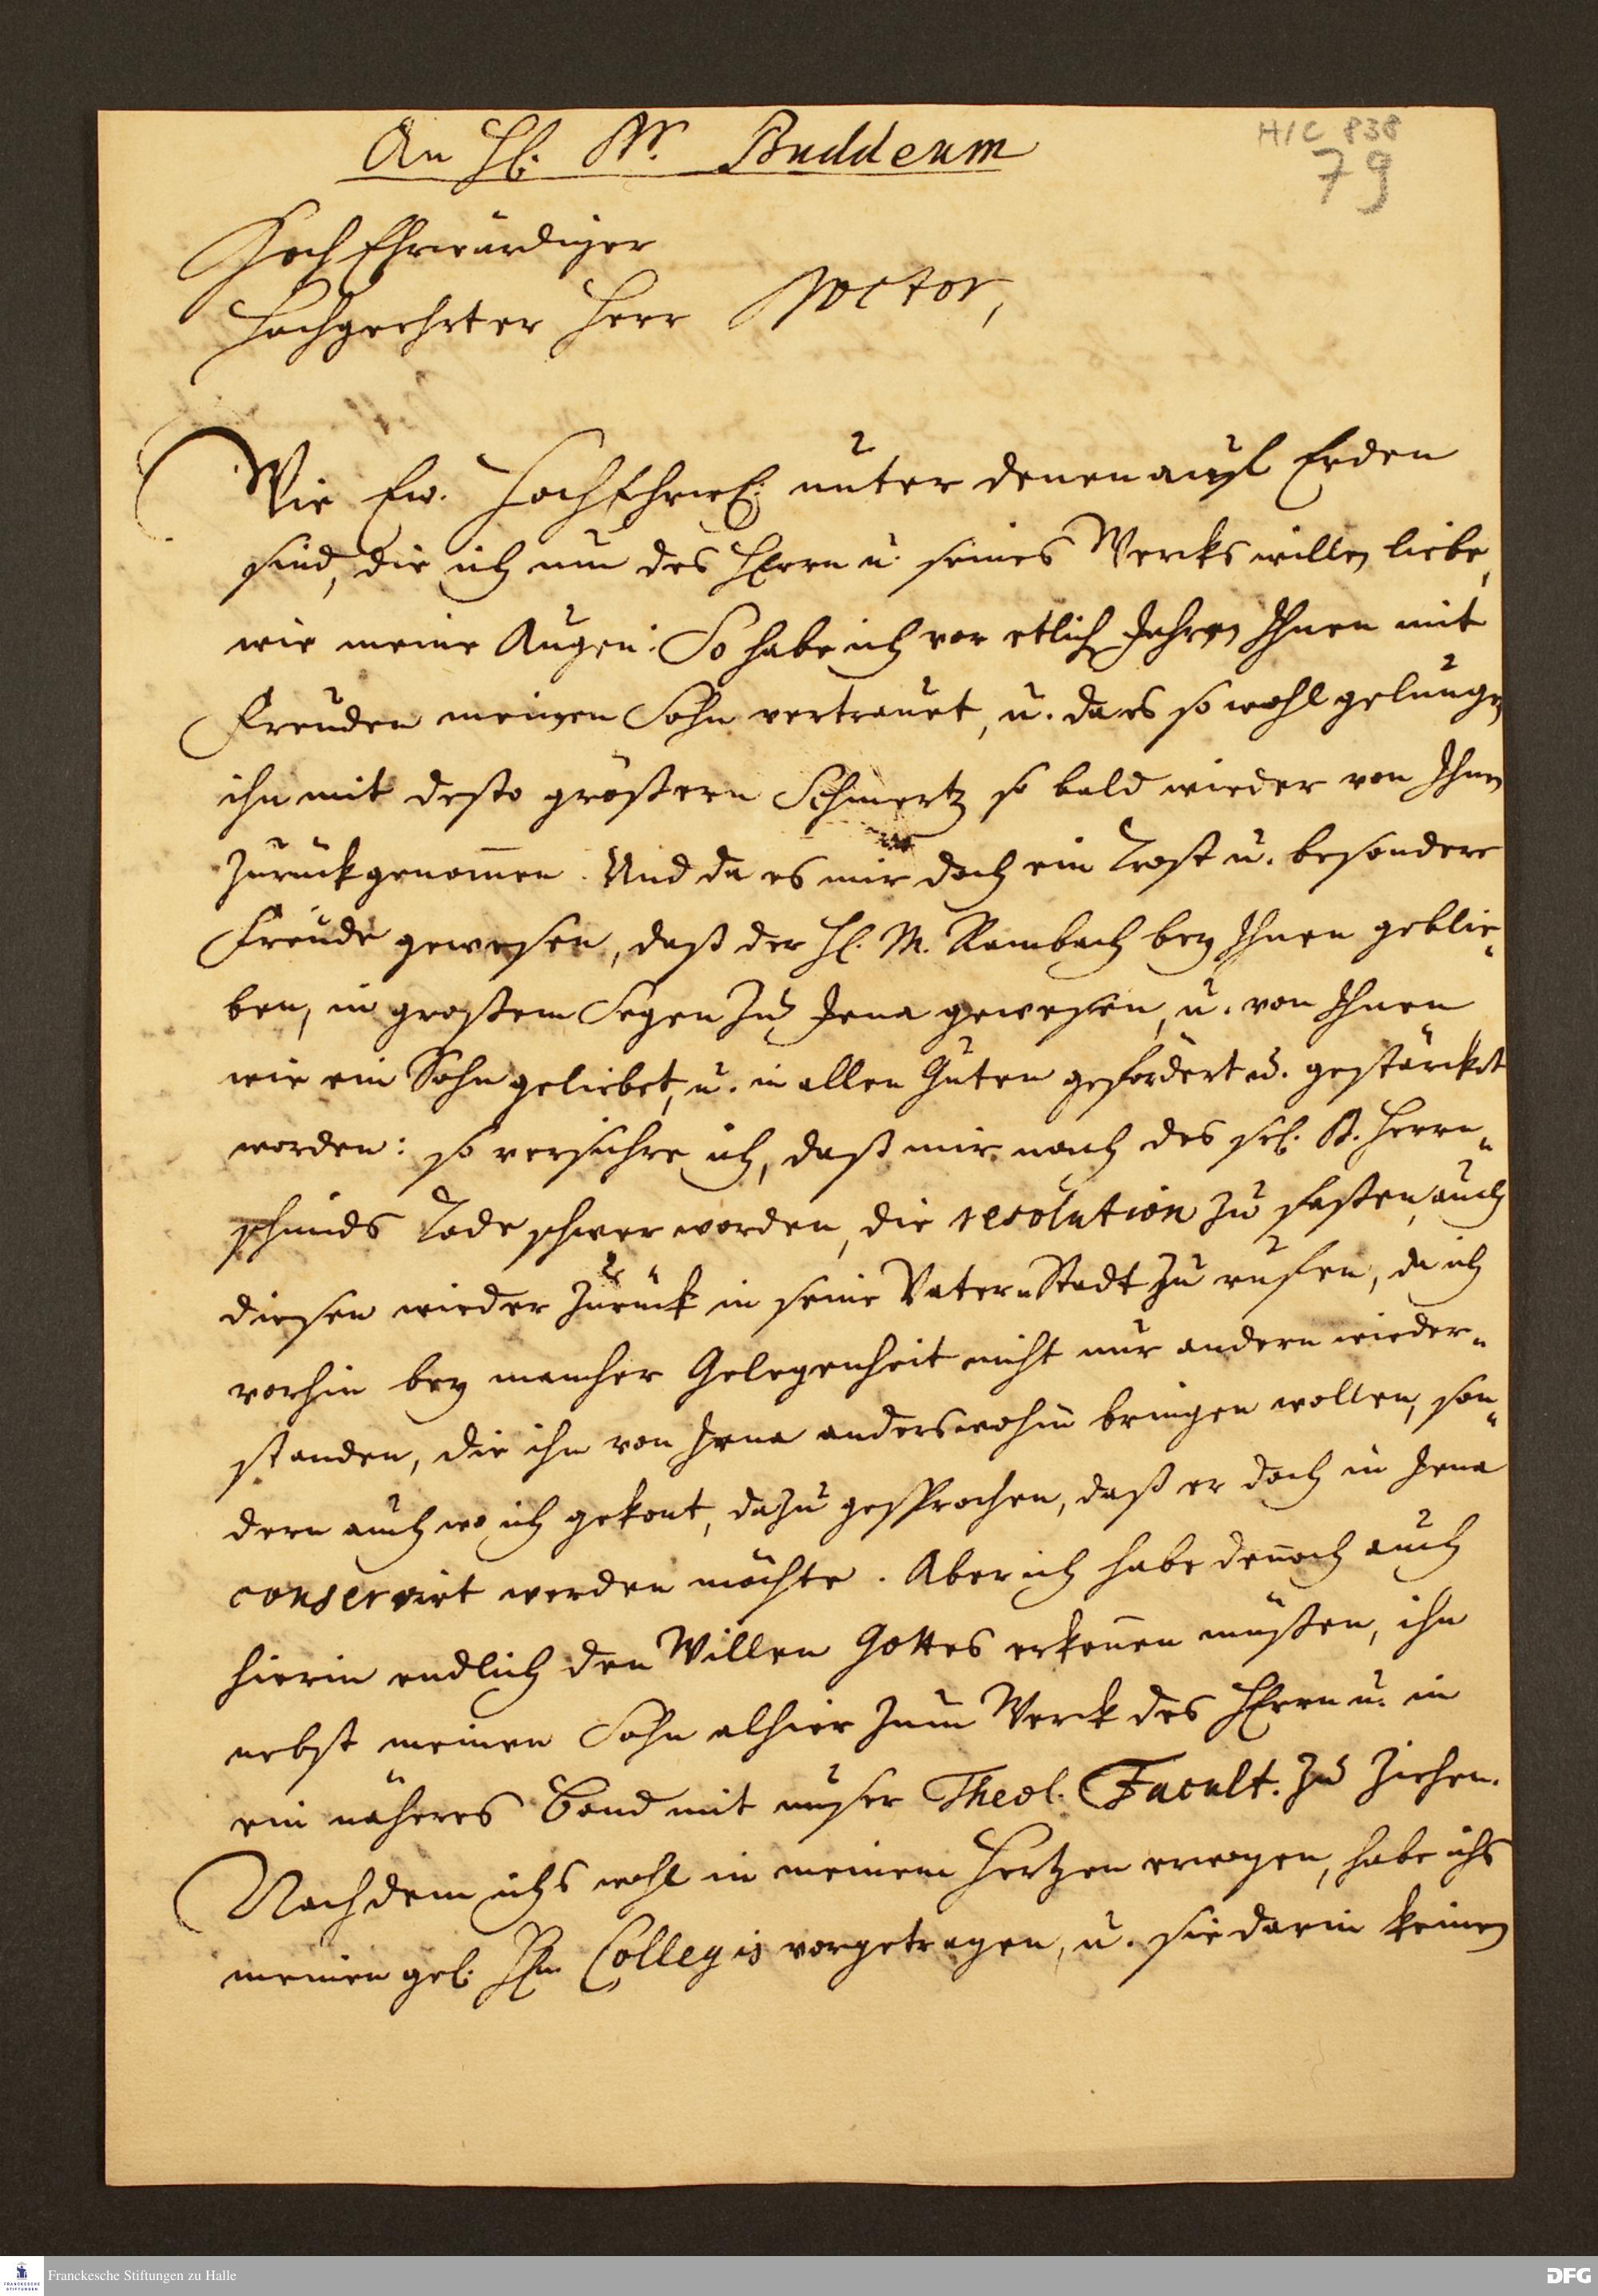 An H. D. Buddeum
H/C 838
79
HochEhrwürdiger
Hochgeehrter Herr Doctor,
Wie Ew. HochEhrw. unter denen auf Erden
sind, die ich um des HErrn u. seines Wercks willen liebe,
wie meine Augen: So habe ich vor etlich Jahren Ihnen mit
Freuden meinen Sohn vertrauet, u. da es so wohl gelungen
ihn mit desto größern Schmertz so bald wieder von Ihnen
zurück genom̄en. Und da es mir doch ein Trost u. besondere
Freude gewesen, daß der H. M. Rambach bey Ihnen geblie-
ben, in großem Segen zu Jena gewesen, u. von Ihnen
wie ein Sohn geliebet, u. in allen Guten gefördert u. gestärcket
worden: so versichre ich, daß mir nach des sel. D. Herrn-
schmids Tode schwer worden, die resolution zu fassen, auch
diesen wieder zurück in seine Vater-Stadt zu rufen, da ich
vorhin bey mancher Gelegenheit nicht nur andern wieder-
standen, die ihn von Jena anderswohin bringen wollen, son-
dern auch wo ich gekont, dazu gesprochen, daß er doch in Jena
conservirt werden möchte. Aber ich habe den̄och auch
hierin endlich den Willen Gottes erken̄en müßen, ihn
nebst meinen Sohn alhier zum Werck des HErrn u. in
ein näheres Band mit unser Theol. Facult. zu ziehen.
Nachdem ichs wohl in meinem Hertzen erwogen, habe ichs
meinen gel. Hn. Collegis vorgetragen, u. sie darin keinen
Franckesche Stiftungen zu Halle
DFG